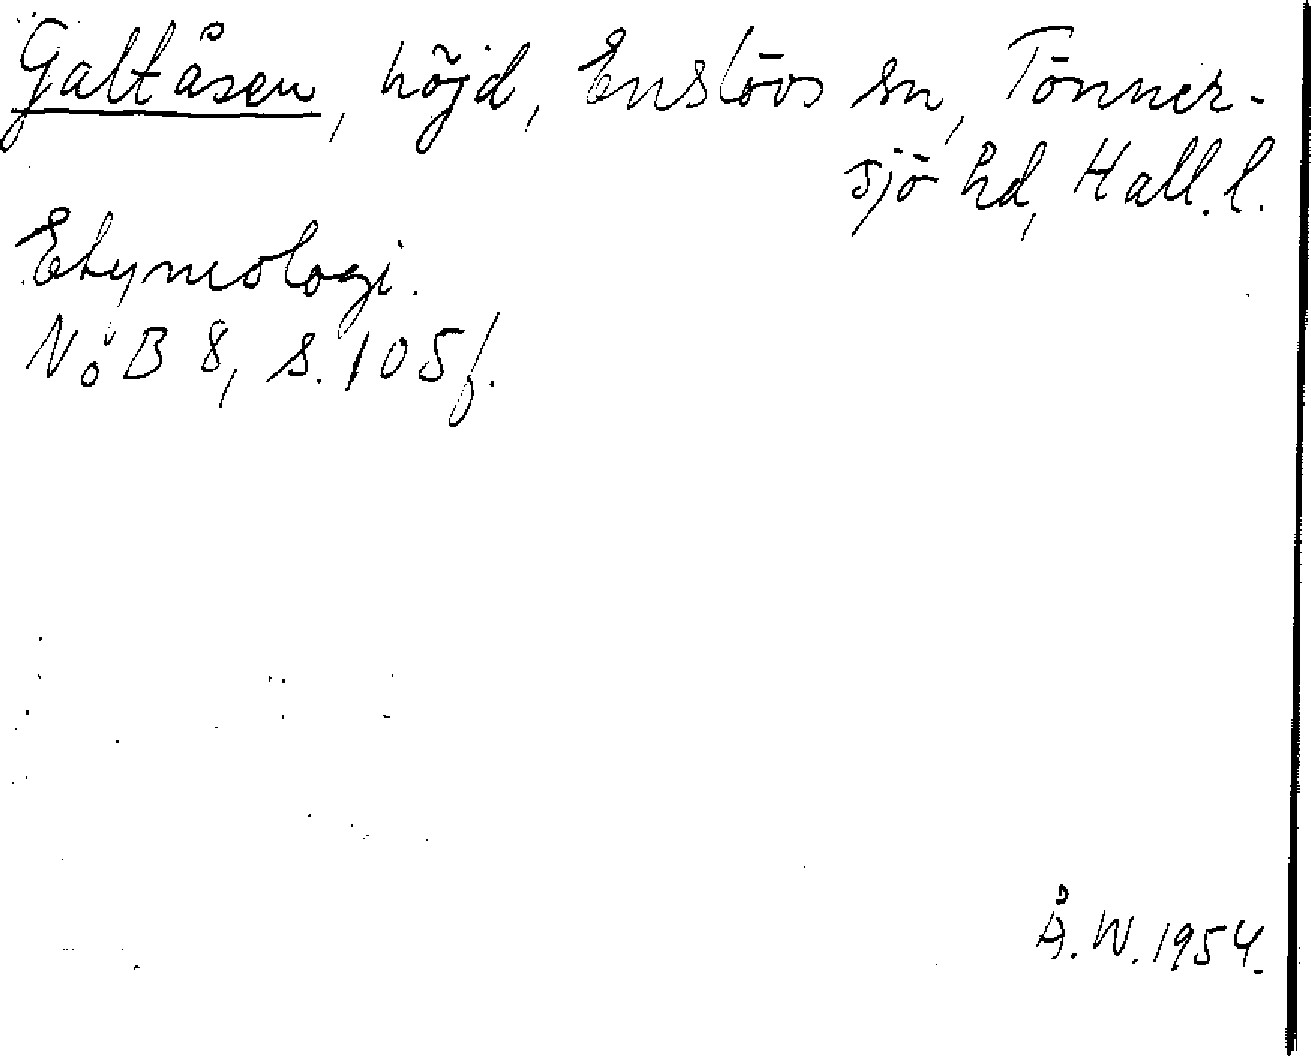 Galtåsen, höjd, Enslövs sn, Tönner-
sjö hd, Hall. l.
Etymologi.
NoB 8, s. 105 f.
Å. W. 1954.